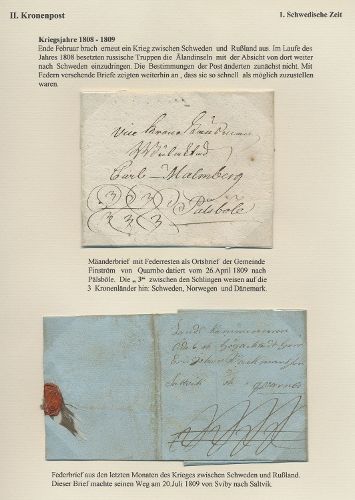 II. Kronenpost
1. Schwedische Zeit
Kriegsjahre 1808 - 1809
Ende Februar brach erneut ein Krieg zwischen Schweden und Rußland aus. Im Laufe des
Jahres 1808 besetzten russische Truppen die Ålandinseln mit der Absicht von dort weiter
nach Schweden einzudringen. Die Bestimmungen der Post änderten zunächst nicht. Mit
Federn versehende Briefe zeigten weiterhin an, dass sie so schnell als möglich zuzustellen
waren.
Vice Krono Länsman
Wälactad
Carl Malmberg
Pålsböle
3 3 3
3 3 3
Mäanderbrief mit Federresten als Ortsbrief der Gemeinde
Finström von Quarnbo datiert vom 26.April 1809 nach
Pålsböle. Die „ 3“ zwischen den Schlingen weisen auf die
3 Kronenländer hin: Schweden, Norwegen und Dänemark.
Saltvik och
Federbrief aus den letzten Monaten des Krieges zwischen Schweden und Rußland.
Dieser Brief machte seinen Weg am 20.Juli 1809 von Sviby nach Saltvik.